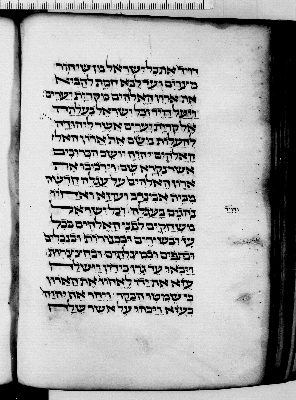 דויד את כל ישראל מן שיחור
מצרים ועד לבוא חמת להביא
את ארון האלהים מקרית יערים:
ויעל דויד וכל ישראל בעלתה
אל קרית יערים אשר ליהודה
להעלות משם את ארון האלהים
יהוה יושב הכרובים
אשר נקרא שם: וירכיבו את
ארון האלהים על עגלה חדשה
מבית אבינדב ועזא ואחיו
נהגים בעגלה: וכל ישראל
ודויד
משחקים לפני האלהים בכל
עז ובשירים ובכנרות ובנבלים
ובתפים ובמצלתים ובחצצרות:
ויבאו עד גרן כידן וישלח
עזא את ידו לאחז את הארון
כי שמטו הבקר: ויחר אף יהוה
בעזא ויכהו על אשר שלח